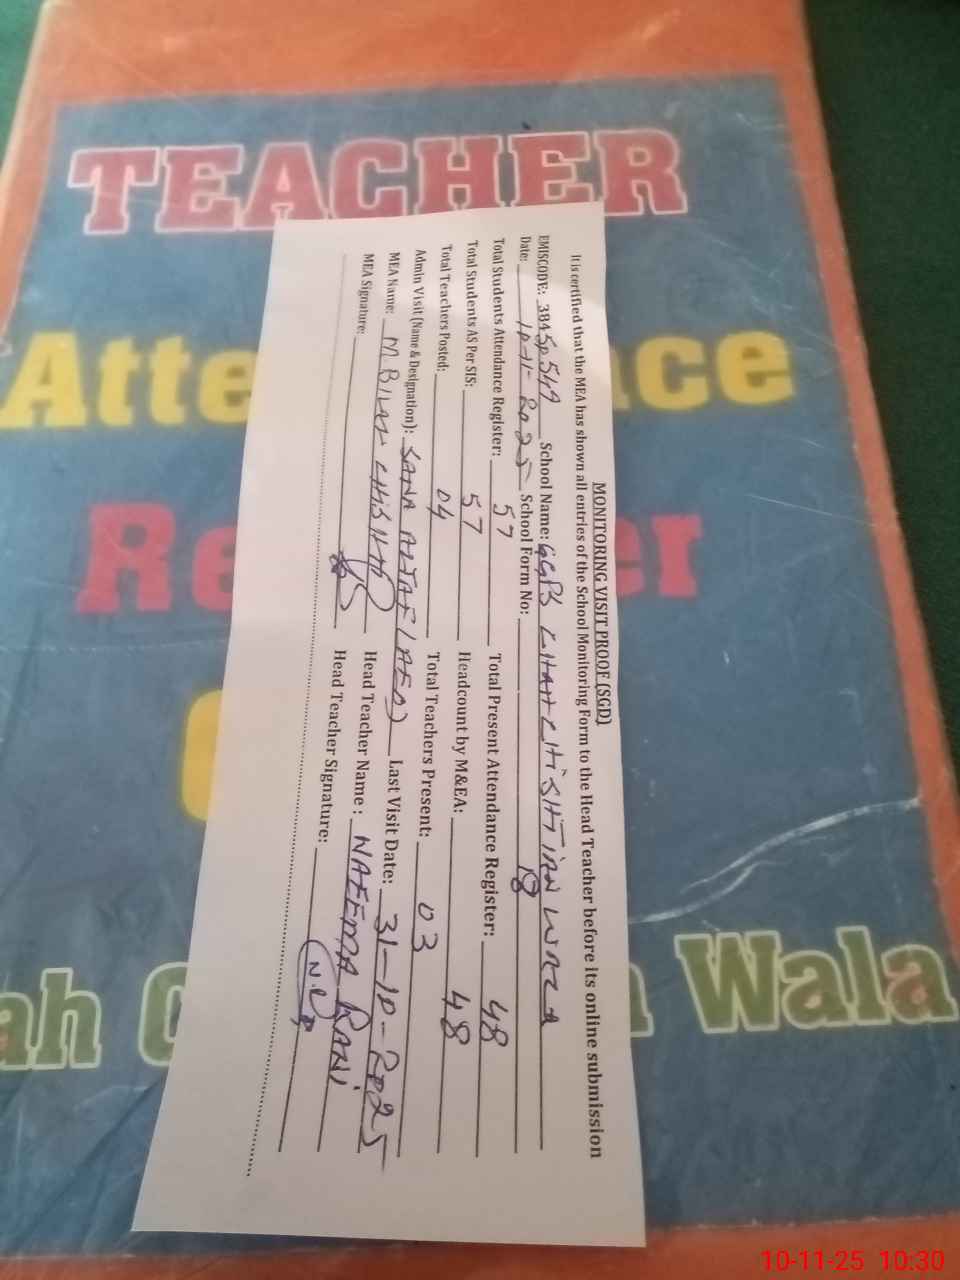 TEACHER
Atte nce
Re er
ah C Wala
MONITORING VISIT PROOF (SGD)
It is certified that the MEA has shown all entries of the School Monitoring Form to the Head Teacher before its online submission
EMISCODE: School Name: GGPS CHAH CHISHTIAN WALA
Date: 10-11-2025 School Form No: 18
Total Students Attendance Register: 57 Total Present Attendance Register: 48
Total Students AS Per SIS: 57 Headcount by M&EA: 48
Total Teachers Posted: 04 Total Teachers Present: 03
Admin Visit (Name & Designation): SANA ALTAF (AEO) Last Visit Date: 31-10-2025
MEA Name: M. BILAL CHISHTI Head Teacher Name : NAEEMA RANI
MEA Signature: Head Teacher Signature:
10-11-25 10:30